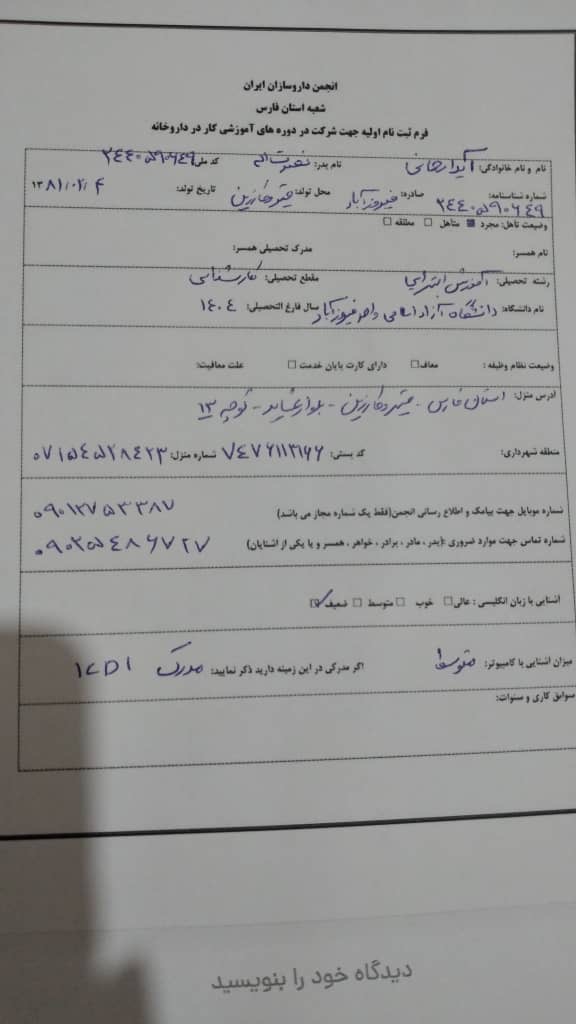 انجمن داروسازان ایران
شعبه استان فارس
فرم ثبت نام اولیه جهت شرکت در دوره های آموزشی کار در داروخانه
نام و نام خانوادگی: آیدا رضائی نام پدر: نصرت اله کد ملی: ۲۴۴۰۵۹۰۶۴۹
شماره شناسنامه: ۲۴۴۰۵۹۰۶۴۹ صادره: فیروزآباد محل تولد: قیروکارزین تاریخ تولد: ۱۳۸۱/۰۲/۰۴
وضعیت تاهل: مجرد ■ متاهل □ مطلقه □
نام همسر: مدرک تحصیلی همسر:
رشته تحصیلی: آموزش ابتدایی مقطع تحصیلی: کارشناسی
نام دانشگاه: دانشگاه آزاد اسلامی واحد فیروزآباد سال فارغ التحصیلی: ۱۴۰۴
وضعیت نظام وظیفه: معاف □ دارای کارت پایان خدمت □ علت معافیت:
آدرس منزل: استان فارس - قیروکارزین - بلوار - کوچه ۱۳
منطقه شهرداری: کد پستی: ۷۴۷۶۱۱۳۱۶۶ شماره منزل: ۰۷۱۵۴۵۲۸۴۲۳
شماره موبایل جهت پیامک و اطلاع رسانی انجمن(فقط یک شماره مجاز می باشد) ۰۹۰۱۲۷۵۳۳۸۷
شماره تماس جهت موارد ضروری :(پدر ، مادر ، برادر ، خواهر ، همسر و یا یکی از آشنایان) ۰۹۰۲۵۴۸۶۷۲۷
آشنایی با زبان انگلیسی : عالی □ خوب □ متوسط □ ضعیف ☑
میزان آشنایی با کامپیوتر: متوسط اگر مدرکی در این زمینه دارید ذکر نمایید: مدرک ICDl
سوابق کاری و سنوات:
دیدگاه خود را بنویسید